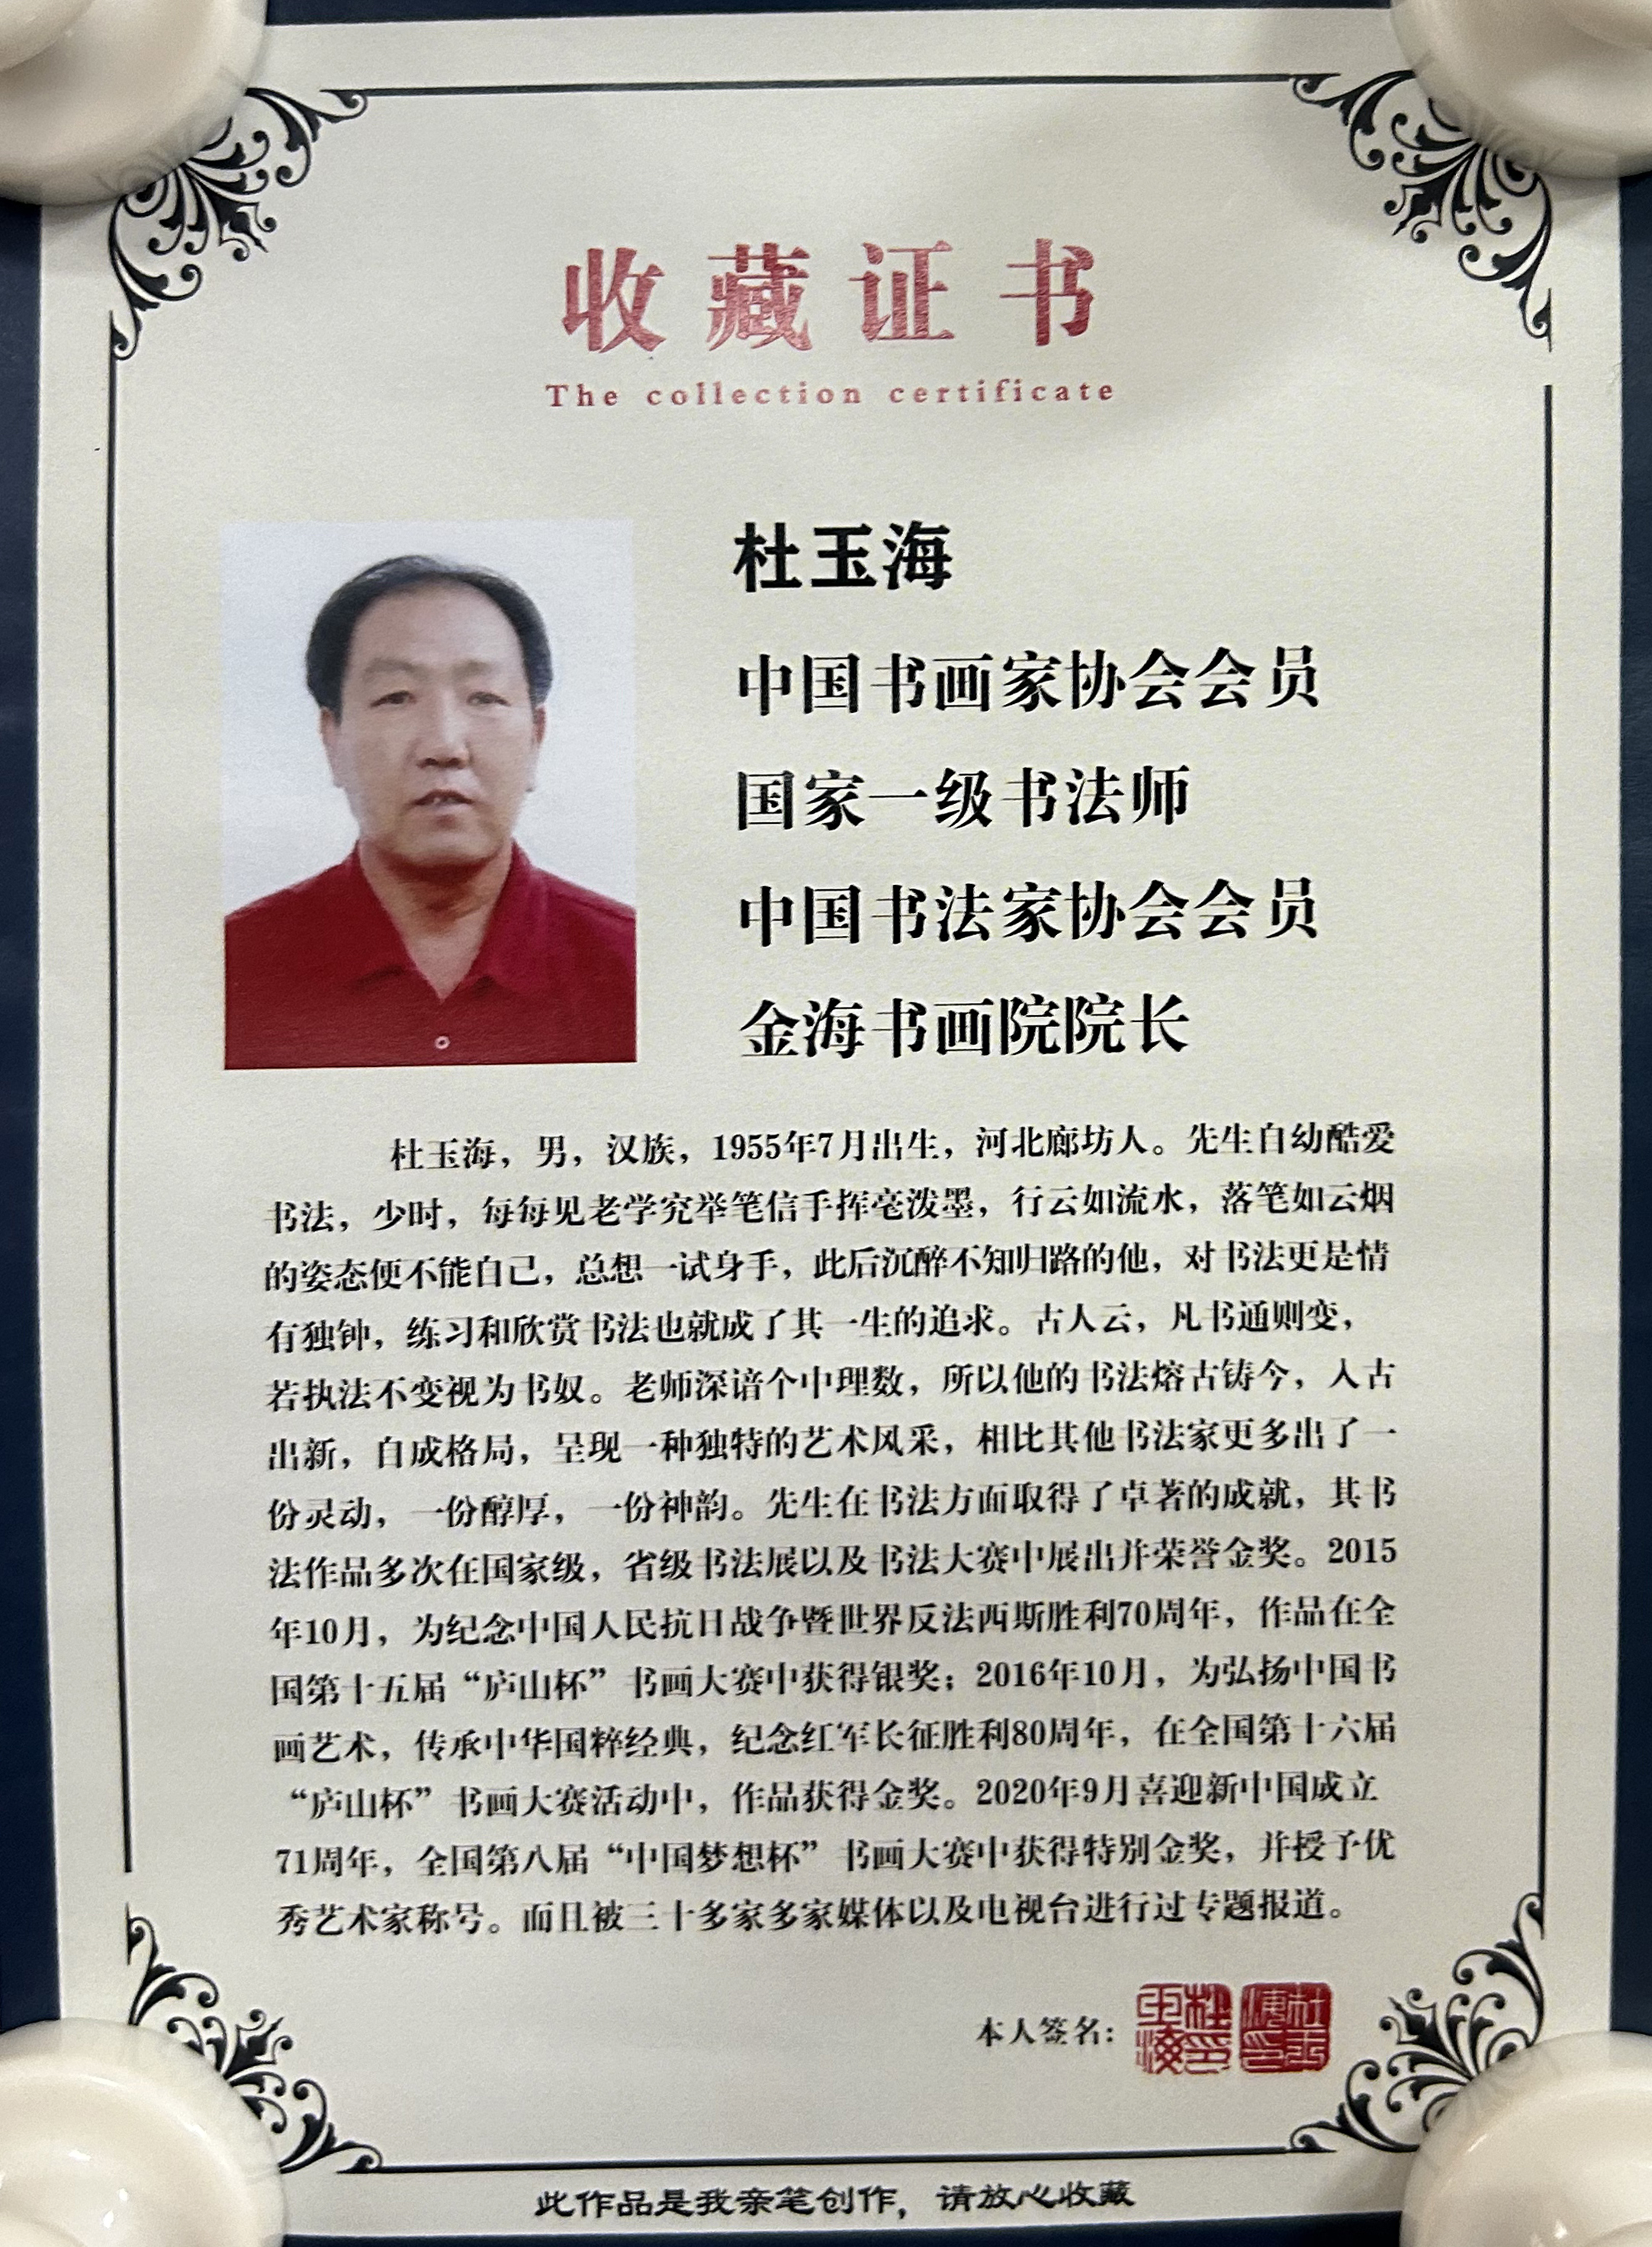 收藏证书
The collection certificate
杜玉海
中国书画家协会会员
国家一级书法师
中国书法家协会会员
金海书画院院长
杜玉海，男，汉族，1955年7月出生，河北廊坊人。先生自幼酷爱
书法，少时，每每见老学究举笔信手挥毫泼墨，行云如流水，落笔如云烟
的姿态便不能自已，总想一试身手，此后沉醉不知归路的他，对书法更是情
有独钟，练习和欣赏书法也就成了其一生的追求。古人云，凡书通则变，
若执法不变视为书奴。老师深谙个中理数，所以他的书法熔古铸今，入古
出新，自成格局，呈现一种独特的艺术风采，相比其他书法家更多出了一
份灵动，一份醇厚，一份神韵。先生在书法方面取得了卓著的成就，其书
法作品多次在国家级，省级书法展以及书法大赛中展出并荣誉金奖。2015
年10月，为纪念中国人民抗日战争暨世界反法西斯胜利70周年，作品在全
国第十五届“庐山杯”书画大赛中获得银奖；2016年10月，为弘扬中国书
画艺术，传承中华国粹经典，纪念红军长征胜利80周年，在全国第十六届
“庐山杯”书画大赛活动中，作品获得金奖。2020年9月喜迎新中国成立
71周年，全国第八届“中国梦想杯”书画大赛中获得特别金奖，并授予优
秀艺术家称号。而且被三十多家多家媒体以及电视台进行过专题报道。
本人签名：
杜玉海印 杜玉海印
此作品是我亲笔创作，请放心收藏